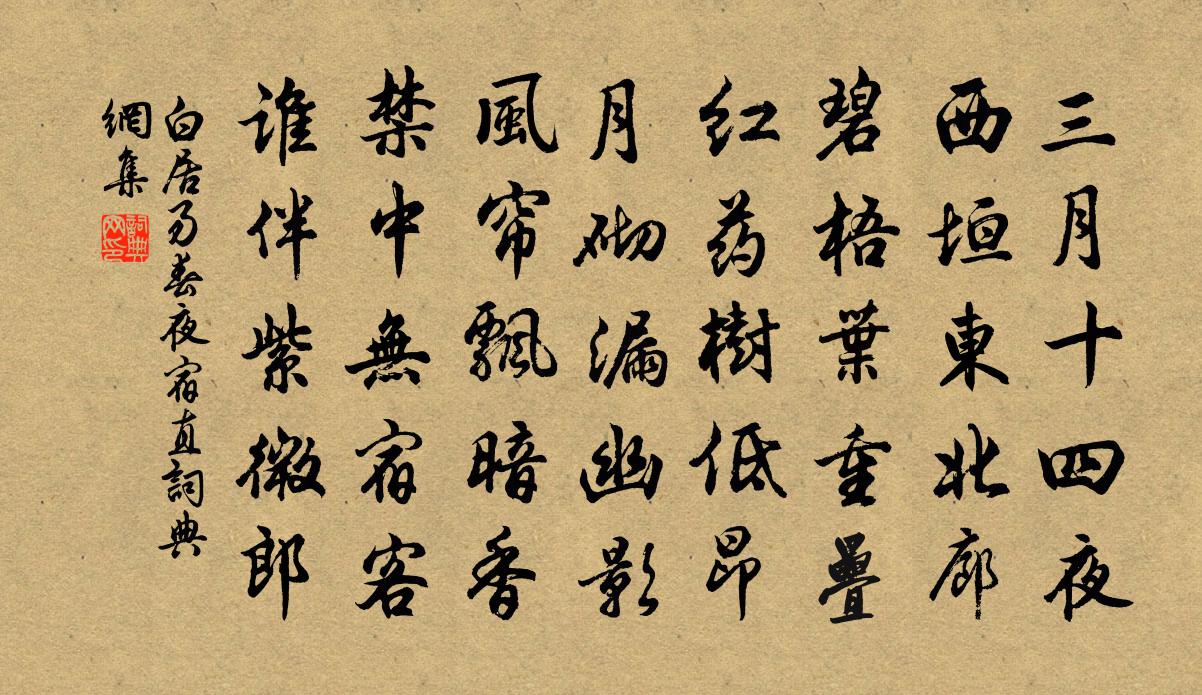 三月十四夜
西垣東北廊
碧梧葉重疊
红药樹低昂
月砌漏幽影
風帘飄暗香
禁中無宿客
谁伴紫微郎
白居易春夜宿直詞典
網集
詞典
网印